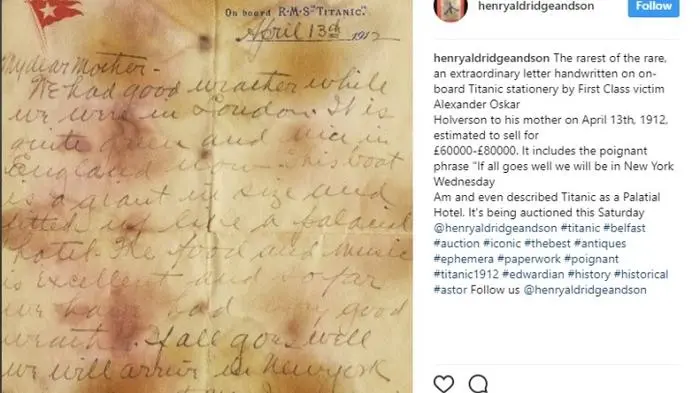 On board R·M·S "TITANIC".
April 13th 1912
My dear Mother-
We had good weather while
we were in London. It is
quite green and nice in
England now. This boat
is a giant in size and
fitted up like a palacial
hotel. The food and music
is excellent and so far
we have had very good
weather. If all goes well
we will arrive in New York
henryaldridgeandson
Follow
henryaldridgeandson The rarest of the rare,
an extraordinary letter handwritten on on-
board Titanic stationery by First Class victim
Alexander Oskar
Holverson to his mother on April 13th, 1912,
estimated to sell for
£60000-£80000. It includes the poignant
phrase "If all goes well we will be in New York
Wednesday
Am and even described Titanic as a Palatial
Hotel. It's being auctioned this Saturday
@henryaldridgeandson #titanic #belfast
#auction #iconic #thebest #antiques
#ephemera #paperwork #poignant
#titanic1912 #edwardian #history #historical
#astor Follow us @henryaldridgeandson